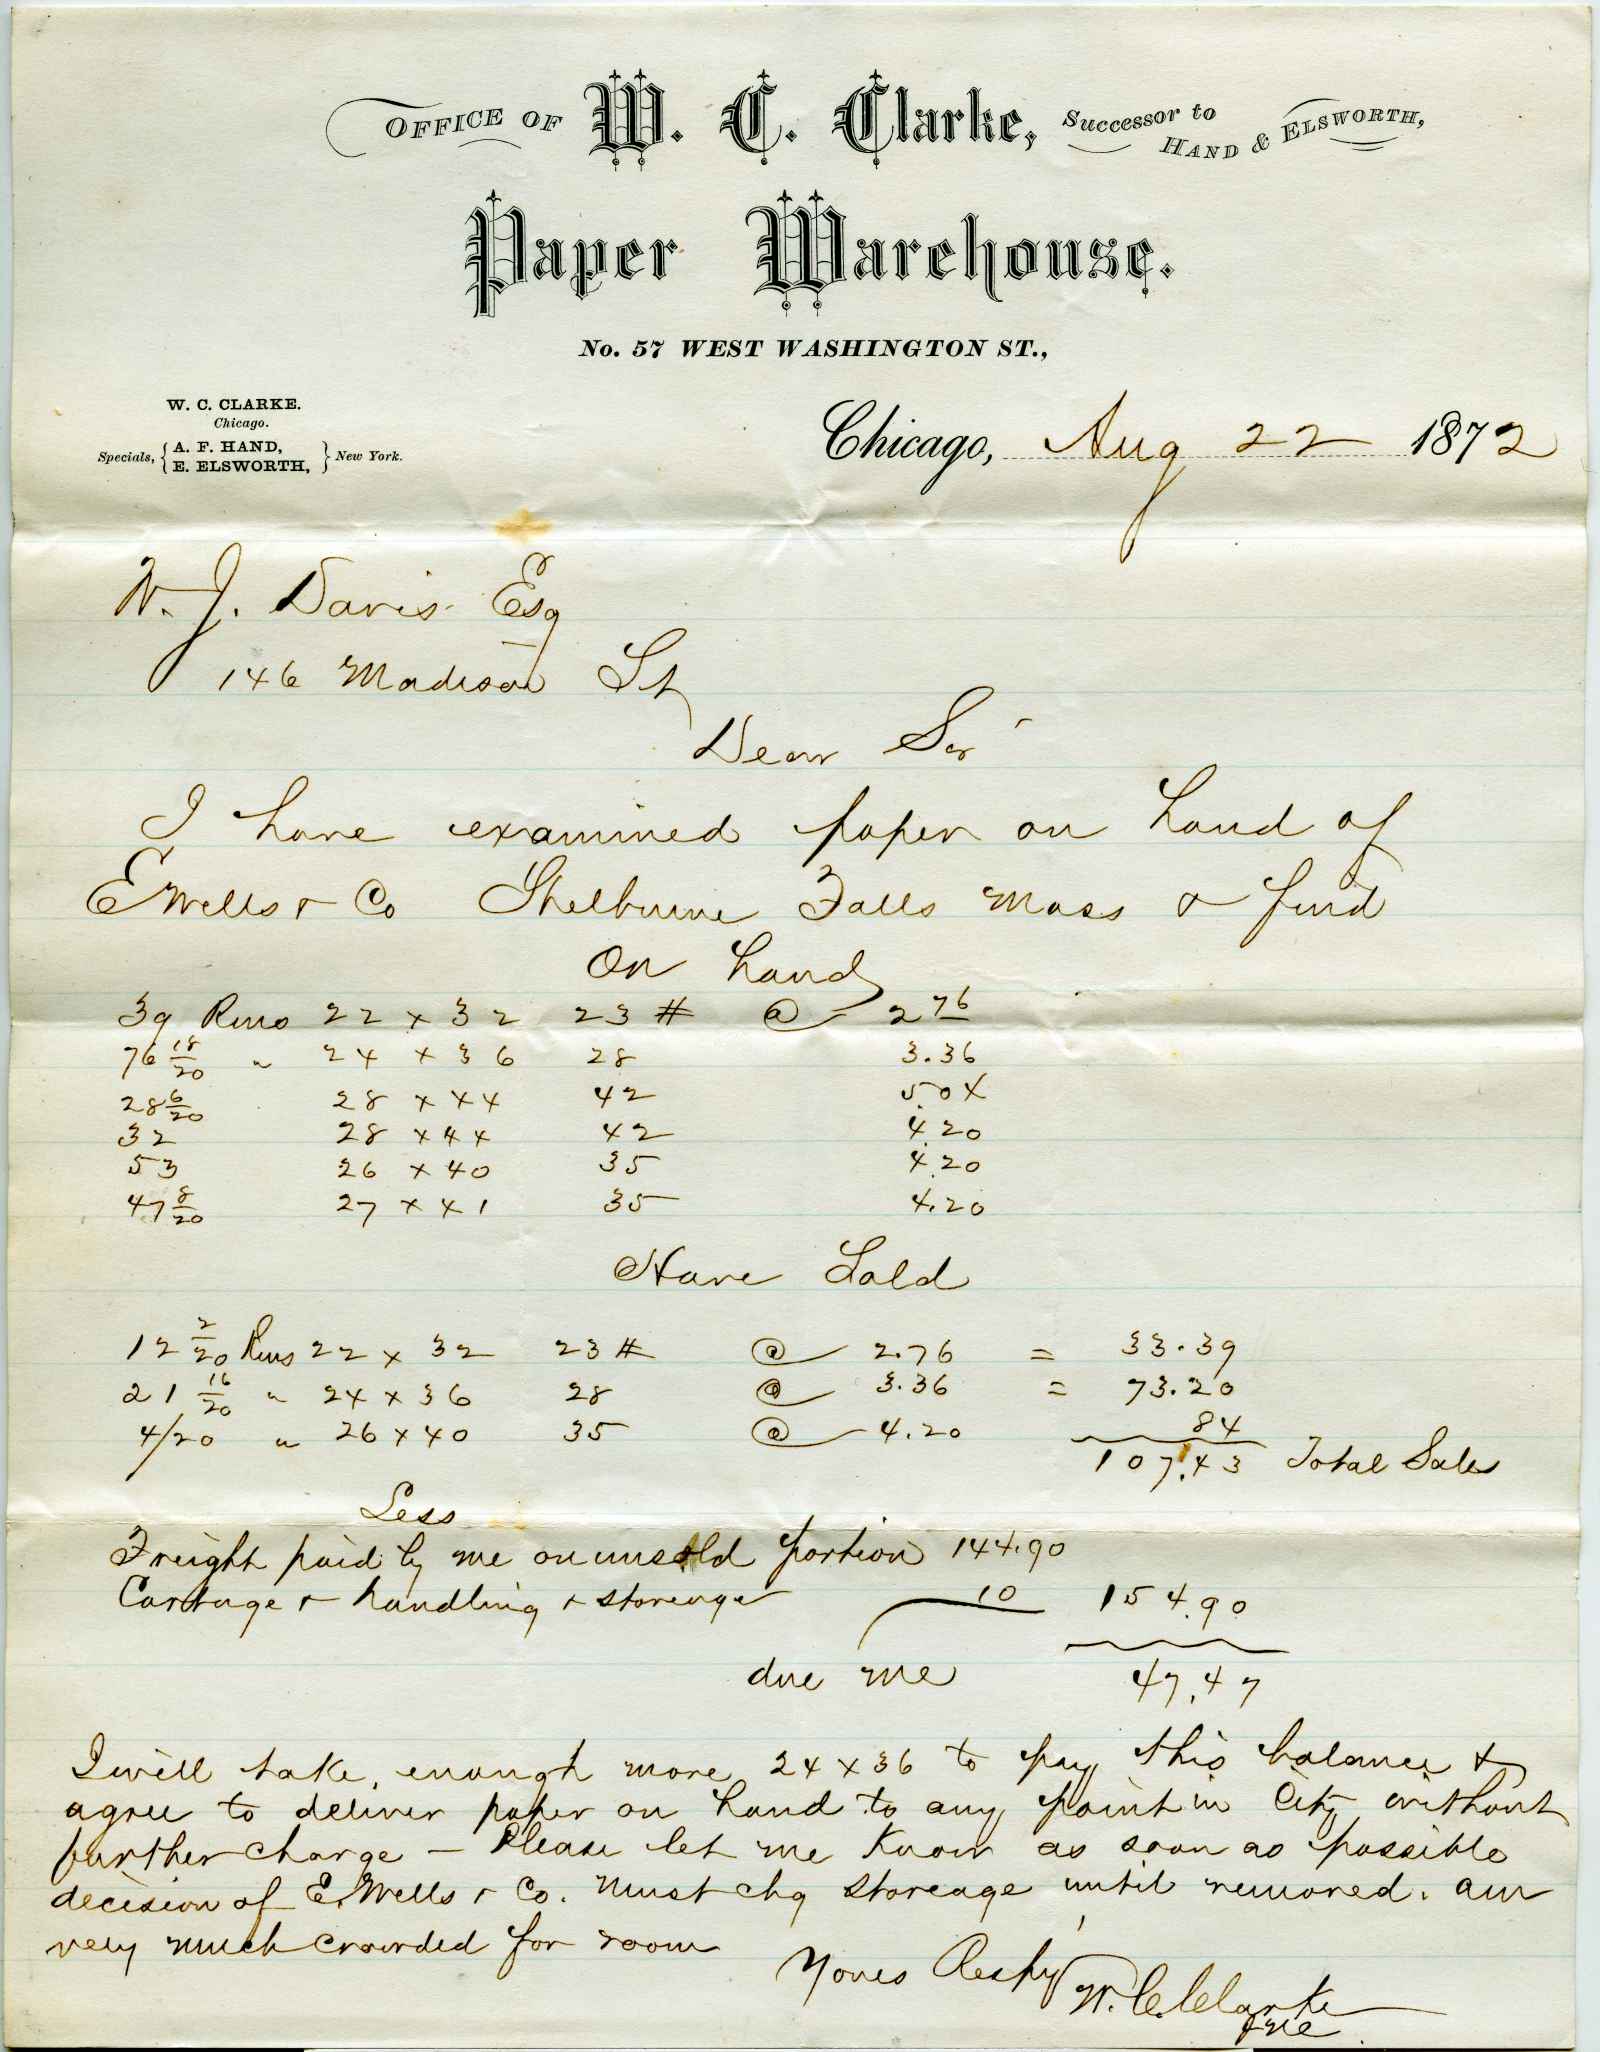 OFFICE OF W. C. Clarke, Successor to HAND & ELSWORTH,
Paper Warehouse.
No. 57 WEST WASHINGTON ST.,
W. C. CLARKE.
Chicago.
Specials, { A. F. HAND, E. ELSWORTH, } New York.
Chicago, Aug 22 1872
W. J. Davis Esq
146 Madison St
Dear Sir
I have examined paper on hand of
E Wells & Co Shelburne Falls Mass & find
On hand
39 Rms 22 x 32 23 # @ 2 76
76 18/20 " 24 x 36 28 3.36
28 6/20 28 x 44 42 5.04
32 28 x 44 42 4.20
53 26 x 40 35 4.20
47 8/20 27 x 41 35 4.20
Have Sold
12 2/20 Rms 22 x 32 23 # @ 2.76 = 33.39
21 16/20 " 24 x 36 28 @ 3.36 = 73.20
4/20 " 26 x 40 35 @ 4.20 84
107.43 Total Sales
Less
Freight paid by me on unsold portion 144.90
Cartage & handling & storeage 10 154.90
due me 47.47
I will take, enough more 24 x 36 to pay this balance &
agree to deliver paper on hand to any point in City without
further charge – Please let me know as soon as possible
decision of E. Wells & Co. Must chg storeage until removed. am
very much crowded for room
Yours Respy
W. C. Clarke